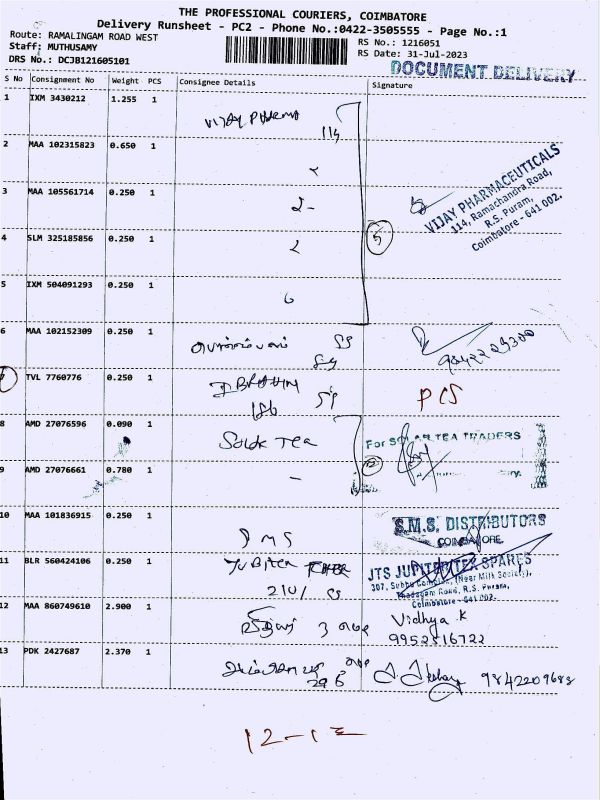 THE PROFESSIONAL COURIERS, COIMBATORE
Delivery Runsheet - PC2 - Phone No.:0422-3505555 - Page No.:1
Route: RAMALINGAM ROAD WEST
Staff: MUTHUSAMY
DRS No.: DCJB121605101
RS No.: 1216051
RS Date: 31-Jul-2023
DOCUMENT DELIVERY
S No Consignment No Weight PCS Consignee Details Signature
1 IXM 3430212 1.255 1 VIJAY PHARMA
114
2 MAA 102315823 0.650 1
3 MAA 105561714 0.250 1
4 SLM 325185856 0.250 1
5 IXM 504091293 0.250 1
5
VIJAY PHARMACEUTICALS
114, Ramachandra Road,
R.S. Puram,
Coimbatore - 641 002.
6 MAA 102152309 0.250 1
7 TVL 7760776 0.250 1 IBRAHIM
PCS
8 AMD 27076596 0.090 1 Solar Tea
For SOLAR TEA TRADERS
9 AMD 27076661 0.780 1 -
10 MAA 101836915 0.250 1 SMS
S.M.S. DISTRIBUTORS
COIMBATORE.
11 BLR 560424106 0.250 1 JUPITER
JTS JUPITER SPARES
307, Subbu Complex, (Near Milk Society),
Thadagam Road, R.S. Puram,
Coimbatore - 641 002.
12 MAA 860749610 2.900 1 Vidhya K
9952816722
13 PDK 2427687 2.370 1
296 9842209688
12-12